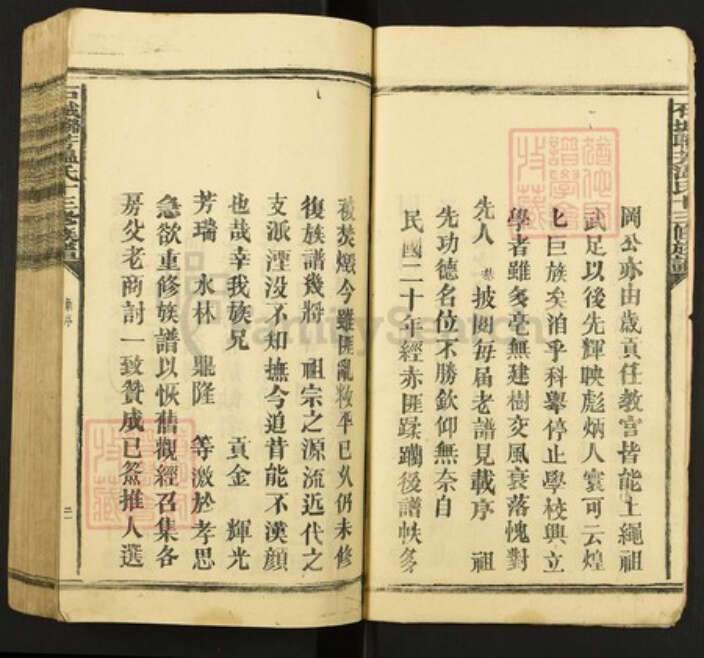 岡公亦由歲貢任教官皆能上繩祖
武足以後先輝映彪炳人寰可云煌
七巨族矣洎乎科舉停止學校興立
學者雖多毫無建樹文風衰落愧對
先人 披閱每届老譜見載序 祖
先功德名位不勝欽仰無奈自
民國二十年經赤匪蹂躪後譜帙多
被焚燬今雖匪亂敉平已久仍未修
復族譜幾將 祖宗之源流近代之
支派湮没不知撫今追昔能不漢顔
也哉幸我族兄 貢金 輝光
芳瑞 永林 鼎隆 等激於孝思
急欲重修族譜以恢舊觀經召集各
房父老商討一致贊成已簽推人選
氏十三修族譜
序
二
FamilySearch